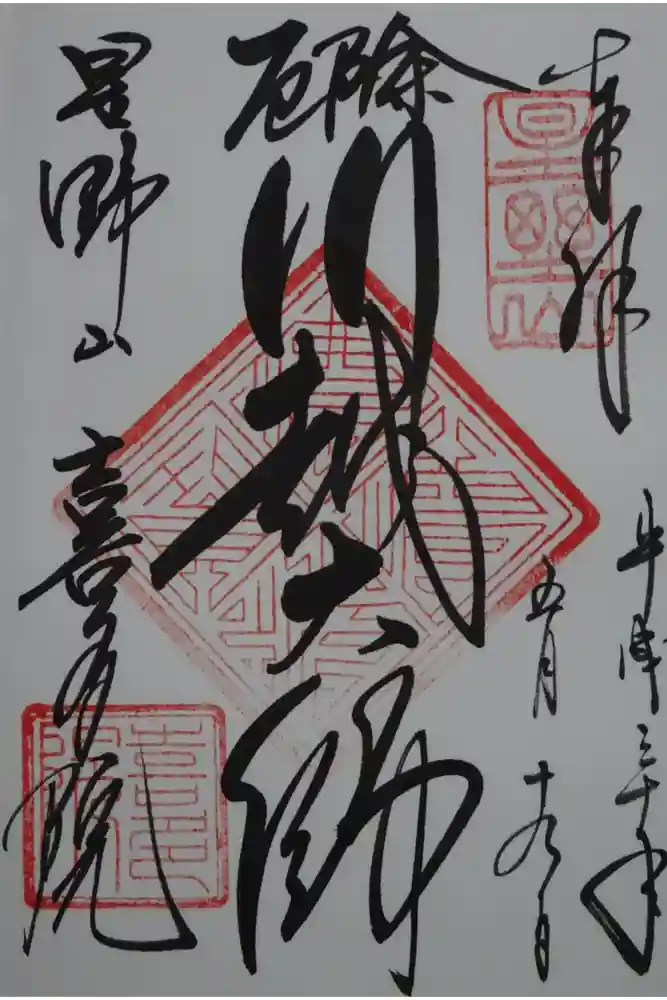 奉拝
平成三十年
五月十九日
厄除
川越大師
星野山 喜多院
星野山